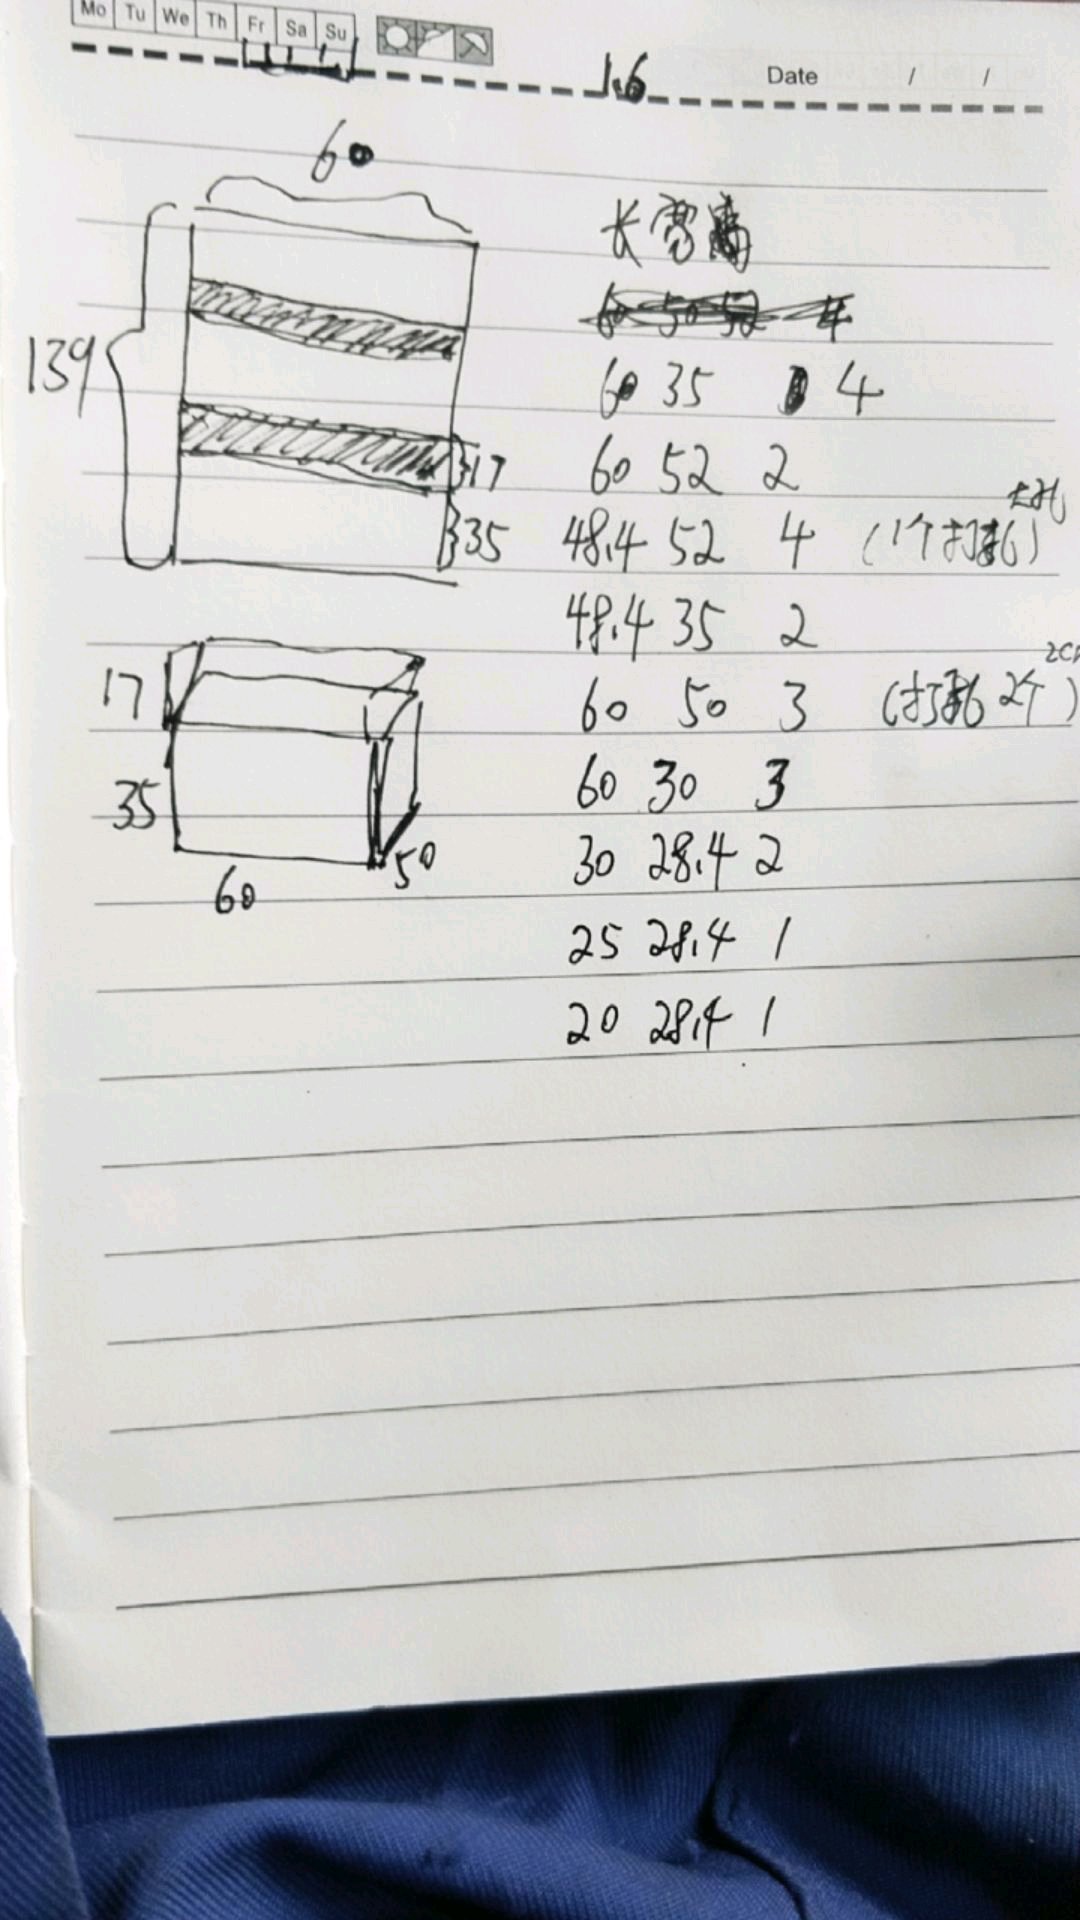 Mo Tu We Th Fr Sa Su
1.6 Date / /
60
139
17
35
17
35
60
50
长 宽 高
60 50 52 4
60 35 4
60 52 2
48.4 52 4 (1个打孔)
大孔
48.4 35 2
60 50 3 (打孔2个)
60 30 3
30 28.4 2
25 28.4 1
20 28.4 1